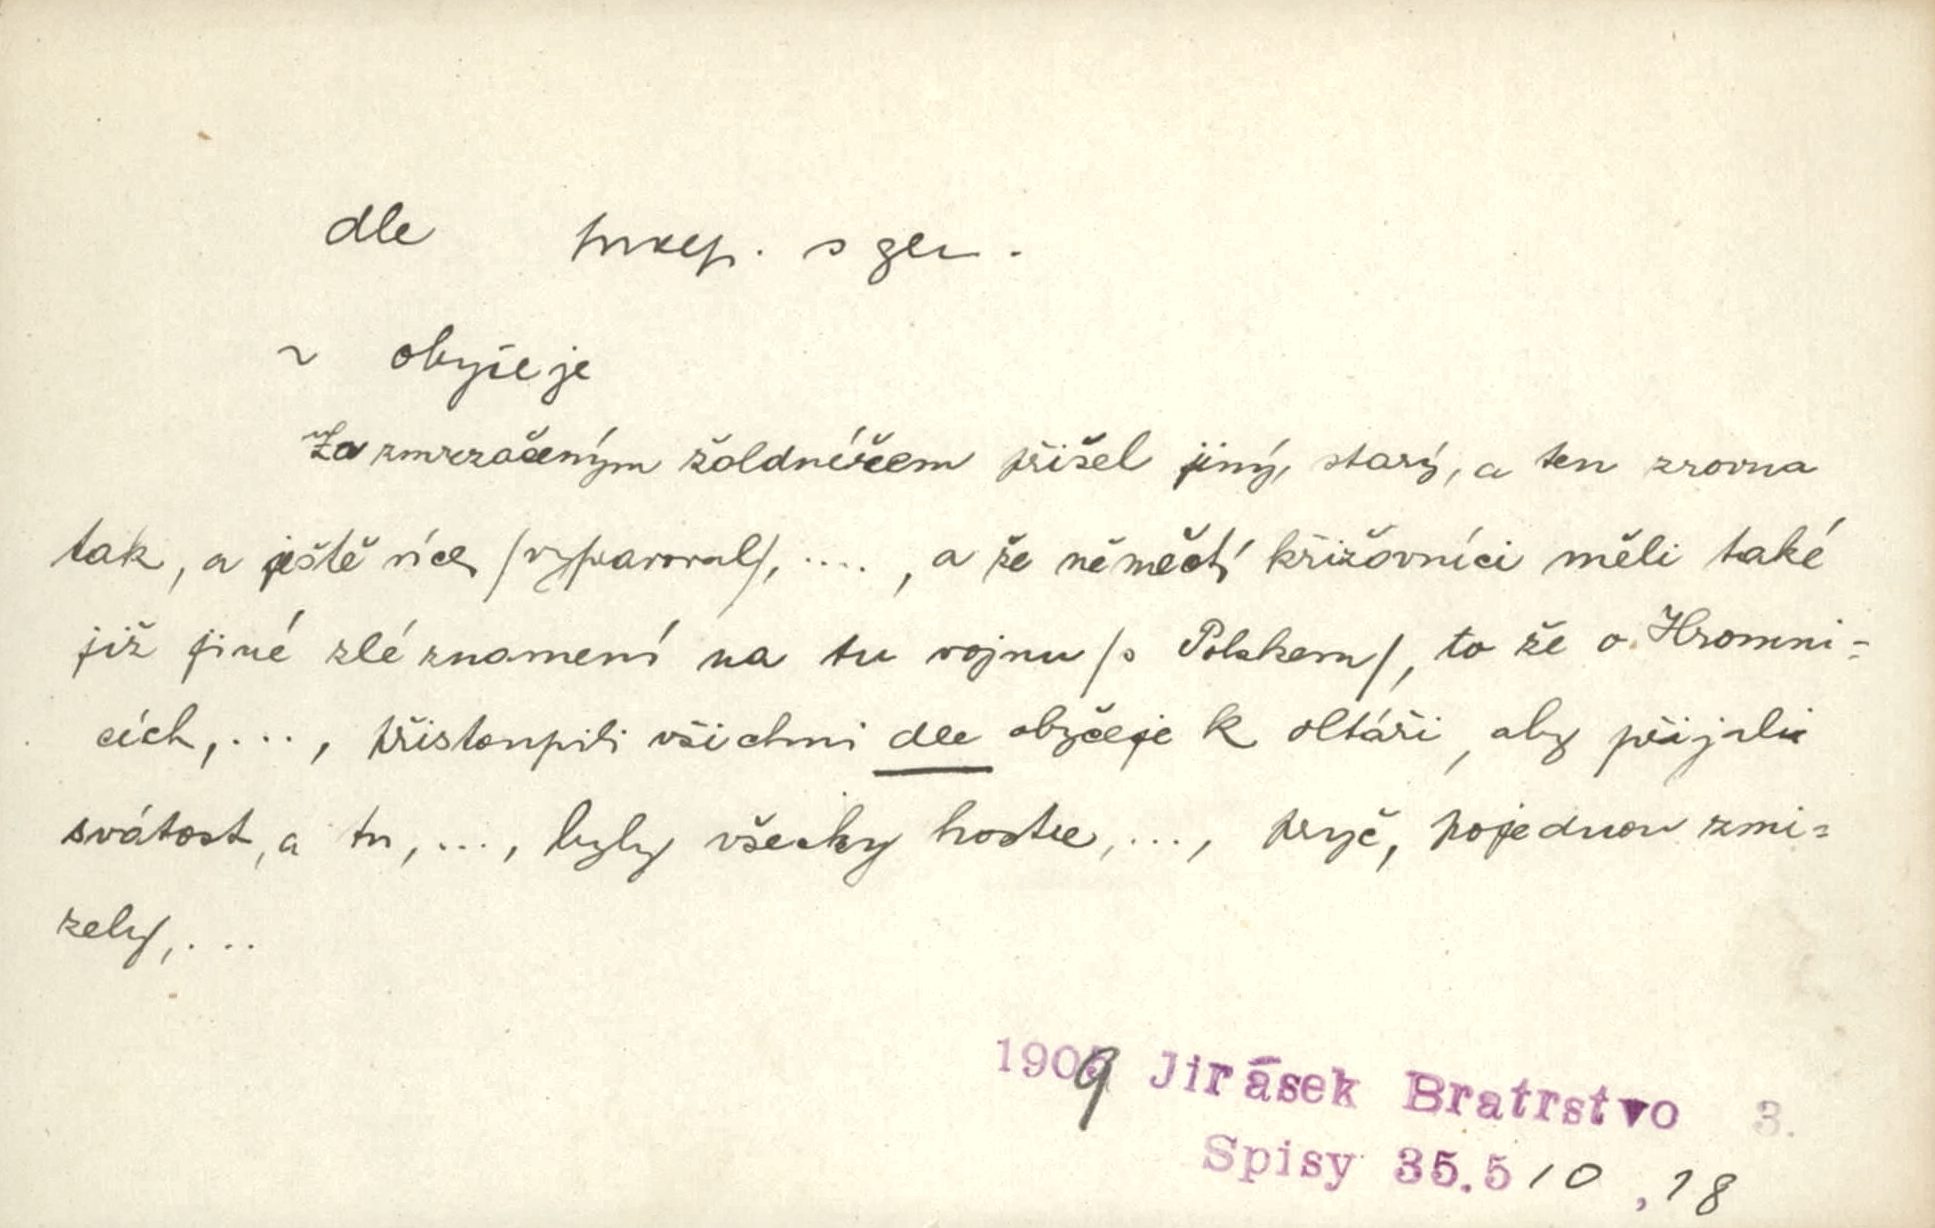 dle předl. s gen.
~ obyčeje
Za zmrzačeným žoldnéřem přišel jiný, starý, a ten zrovna
tak, a ještě více /vypravoval/, ...., a že němečtí křižovníci měli také
již jiné zlé znamení na tu vojnu /s Polskem/, to že o Hromni=
cích, ..., přistoupili všichni dle obyčeje k oltáři, aby přijali
svátost, a tu, ..., byly všecky hostie, ..., pryč, pojednou zmi=
zely, ...
1909 Jirásek Bratrstvo 3.
Spisy 35.510,18